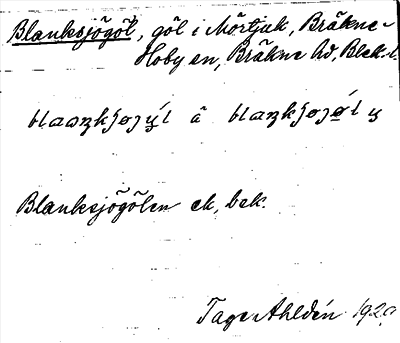 Blanksjögöl, göl i Mörtjuk, Bräkne-
Hoby sn, Bräkne hd, Blek. l.
blaaŋkʃøjý̨l å blaŋkʃøjǿl y
Blanksjögölen ek, bek.
Tage Ahldén 1920